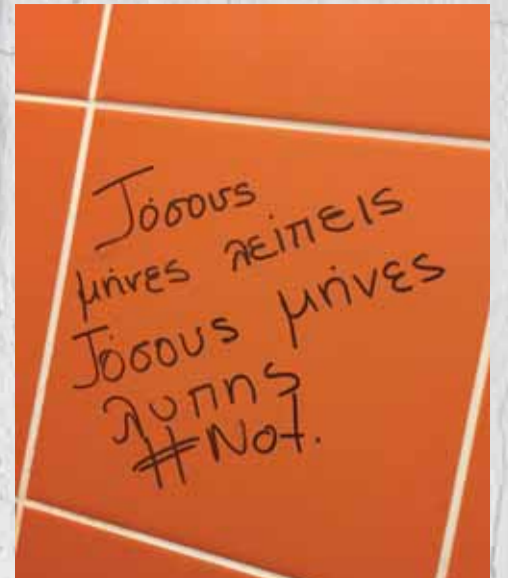 Τόσους
μήνες λείπεις
Τόσους μήνες
λυπης
#Not.